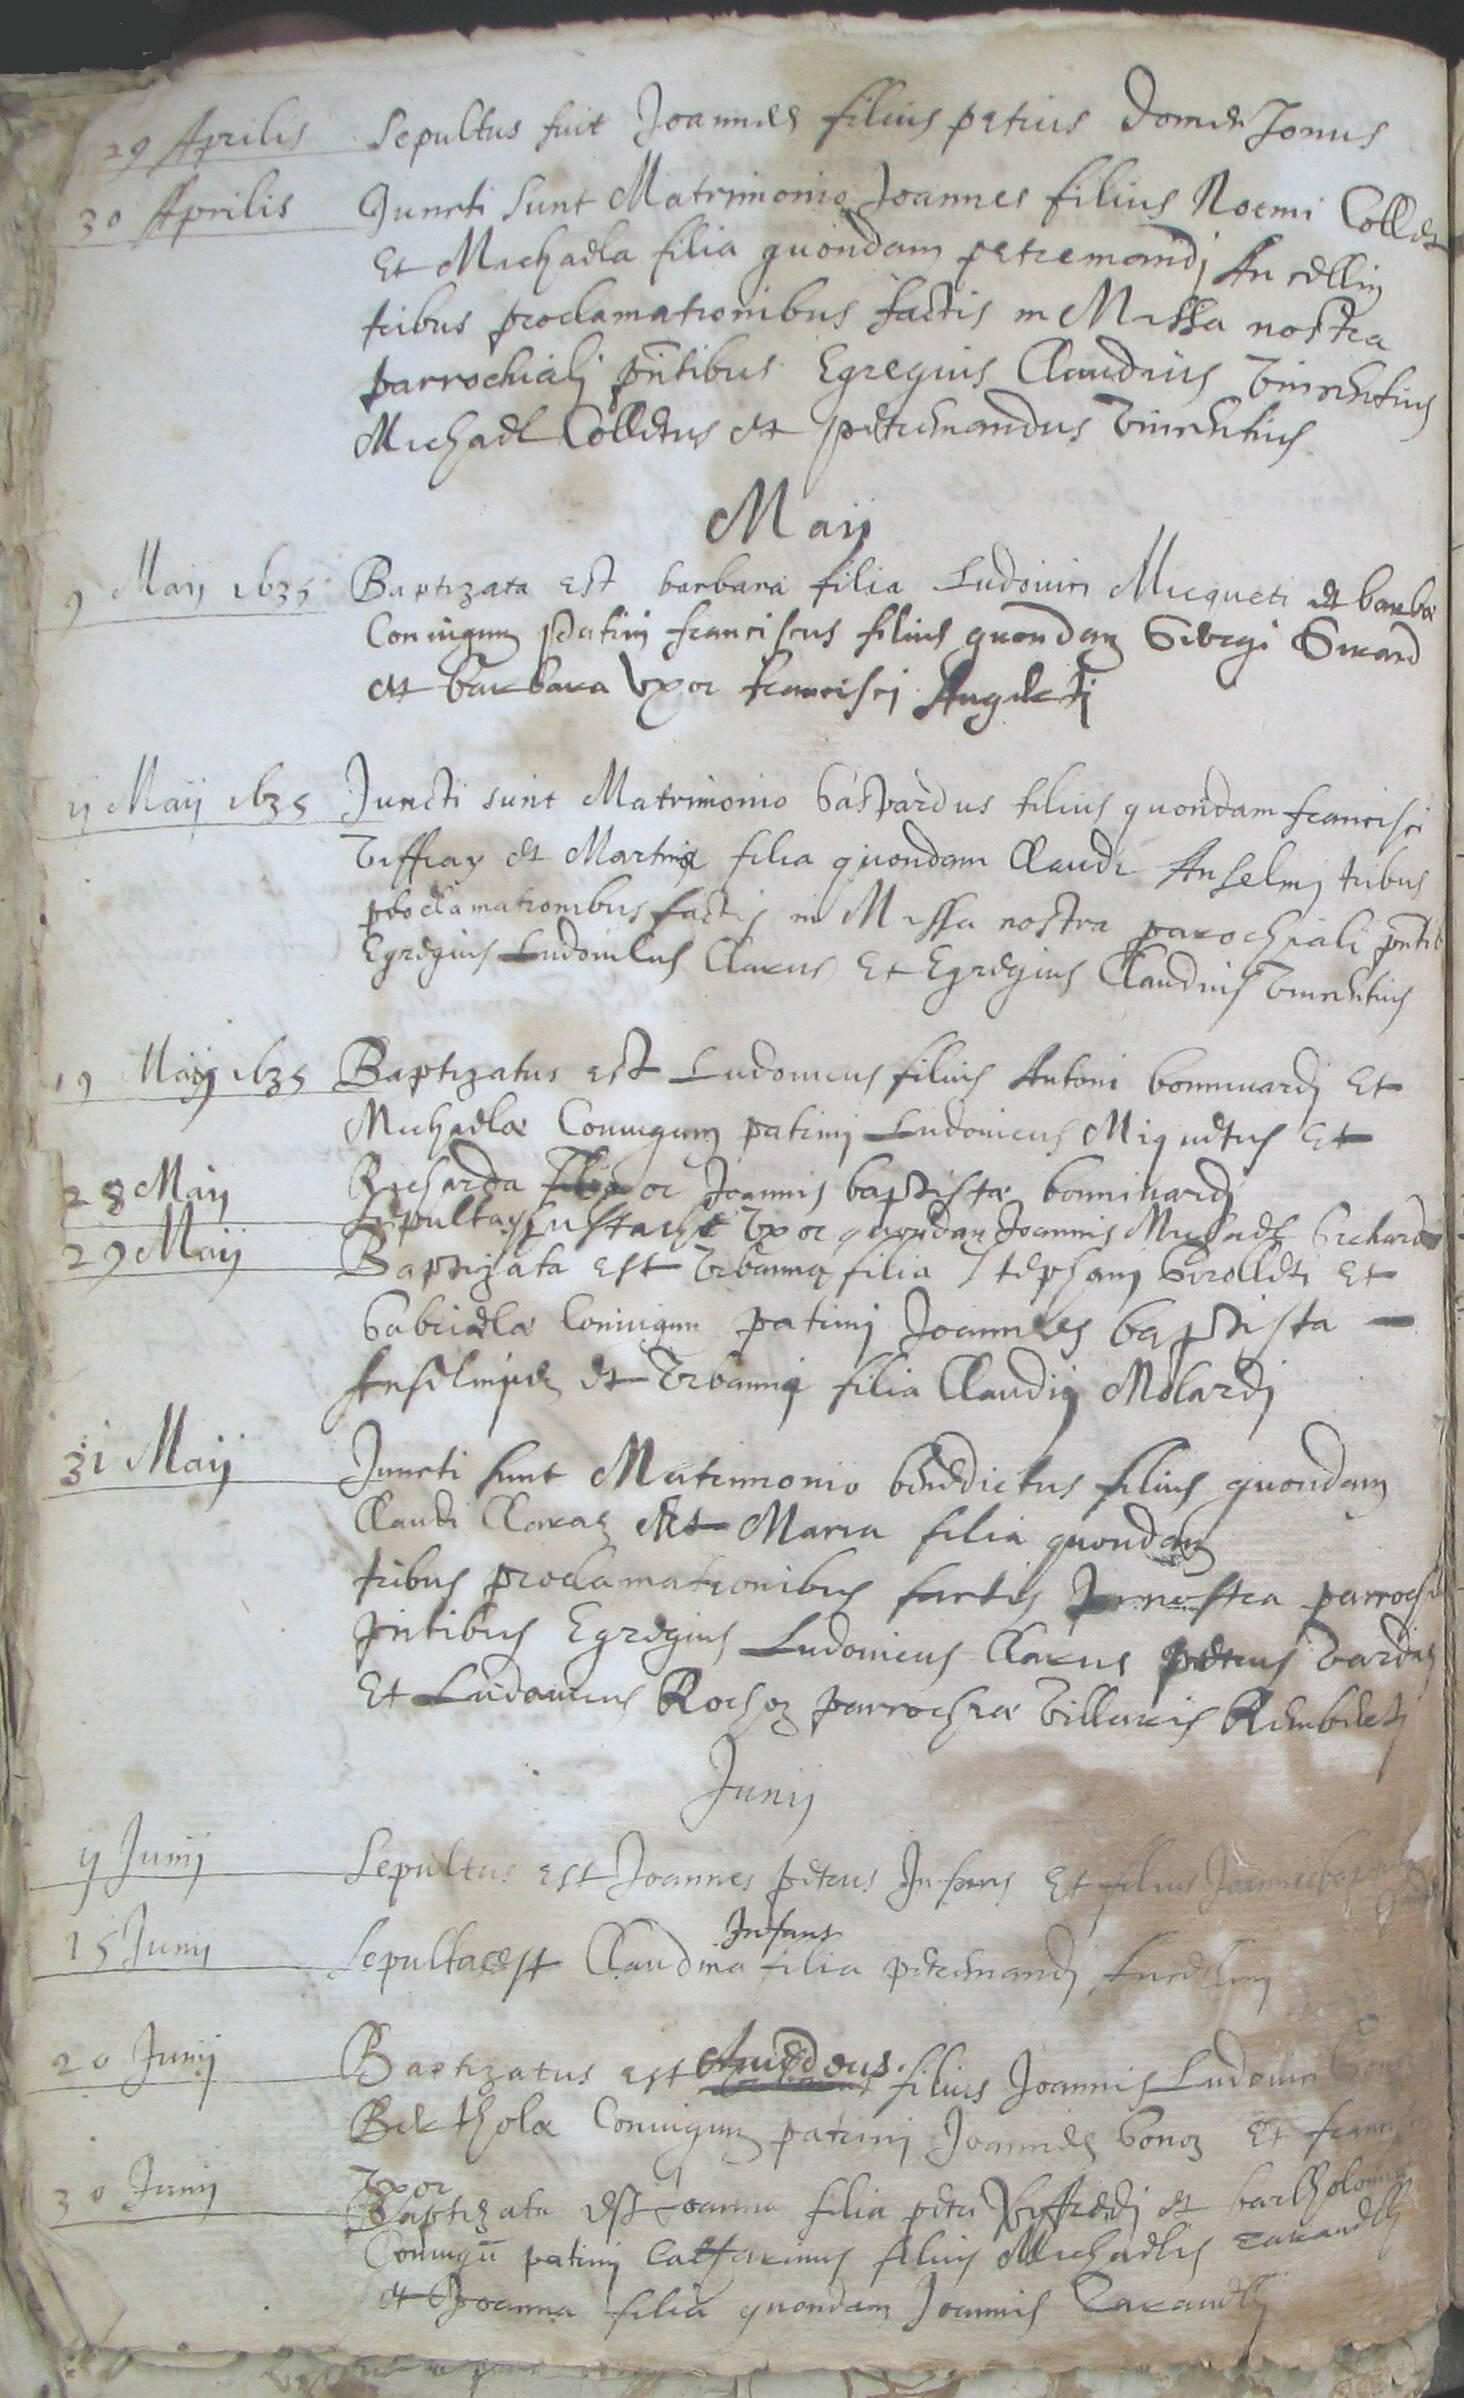 29 Aprilis Sepultus fuit Joannes filius petrus
30 Aprilis Juncti sunt Matrimonio Joannes filius Noemi Collet
Et Michaela filia quondam petremandi
tribus proclamationibus factis in Missa nostra
parrochiali pntibus Egregius Claudius Vincentius
Michael Colletus et petremandus Vincentius
Maij
9 Maij 1635 Baptizata est barbara filia Ludovici Micqueti et barbæ
Coniugum patrini franciscus filius quondam
et barbara Vxor francisci
11 Maij 1635 Juncti sunt Matrimonio Gaspardus filius quondam francisci
Viffray et Martina filia quondam Claudi Anselmi tribus
proclamationibus factis in Missa nostra parochiali pntib
Egregius Ludovicus Clarus Et Egregius Claudius Vincentius
19 Maij 1635 Baptizatus est Ludovicus filius Antoni bonnivardi Et
Michaelæ Coniugum patrini Ludovicus Miquetus Et
Richarda Vxor Joannis baptistæ bonnivardi
28 Maij Sepulta Eustache Vxor quondam Joannis Michael Richard
29 Maij Baptizata est Vrbanna filia Stephani Girolleti Et
Gabrielæ Coniugum patrini Joannes baptista
et Vrbanna filia Claudij Molardi
31 Maij Juncti sunt Matrimonio benedictus filius quondam
Claudi Claraz et Maria filia quondam
tribus proclamationibus factis In nostra parroch
pntibus Egregius Ludovicus Clarus petrus
Et Ludovicus Rochoz parrochiæ Villaris
Junij
11 Junij Sepultus est Joannes petrus Infans Et filius
15 Junij Sepulta est Claudina Infans filia petremandi
20 Junij Baptizatus est Amedeus filius Joannis Ludovici
Berthola Coniugum patrini Joannes Gonoz Et
Vxor
30 Junij Baptizata est Joanna filia petri et bartholomea
Coniugū patrini Catharinus filius Michaelis
et Joanna filia quondam Joannis